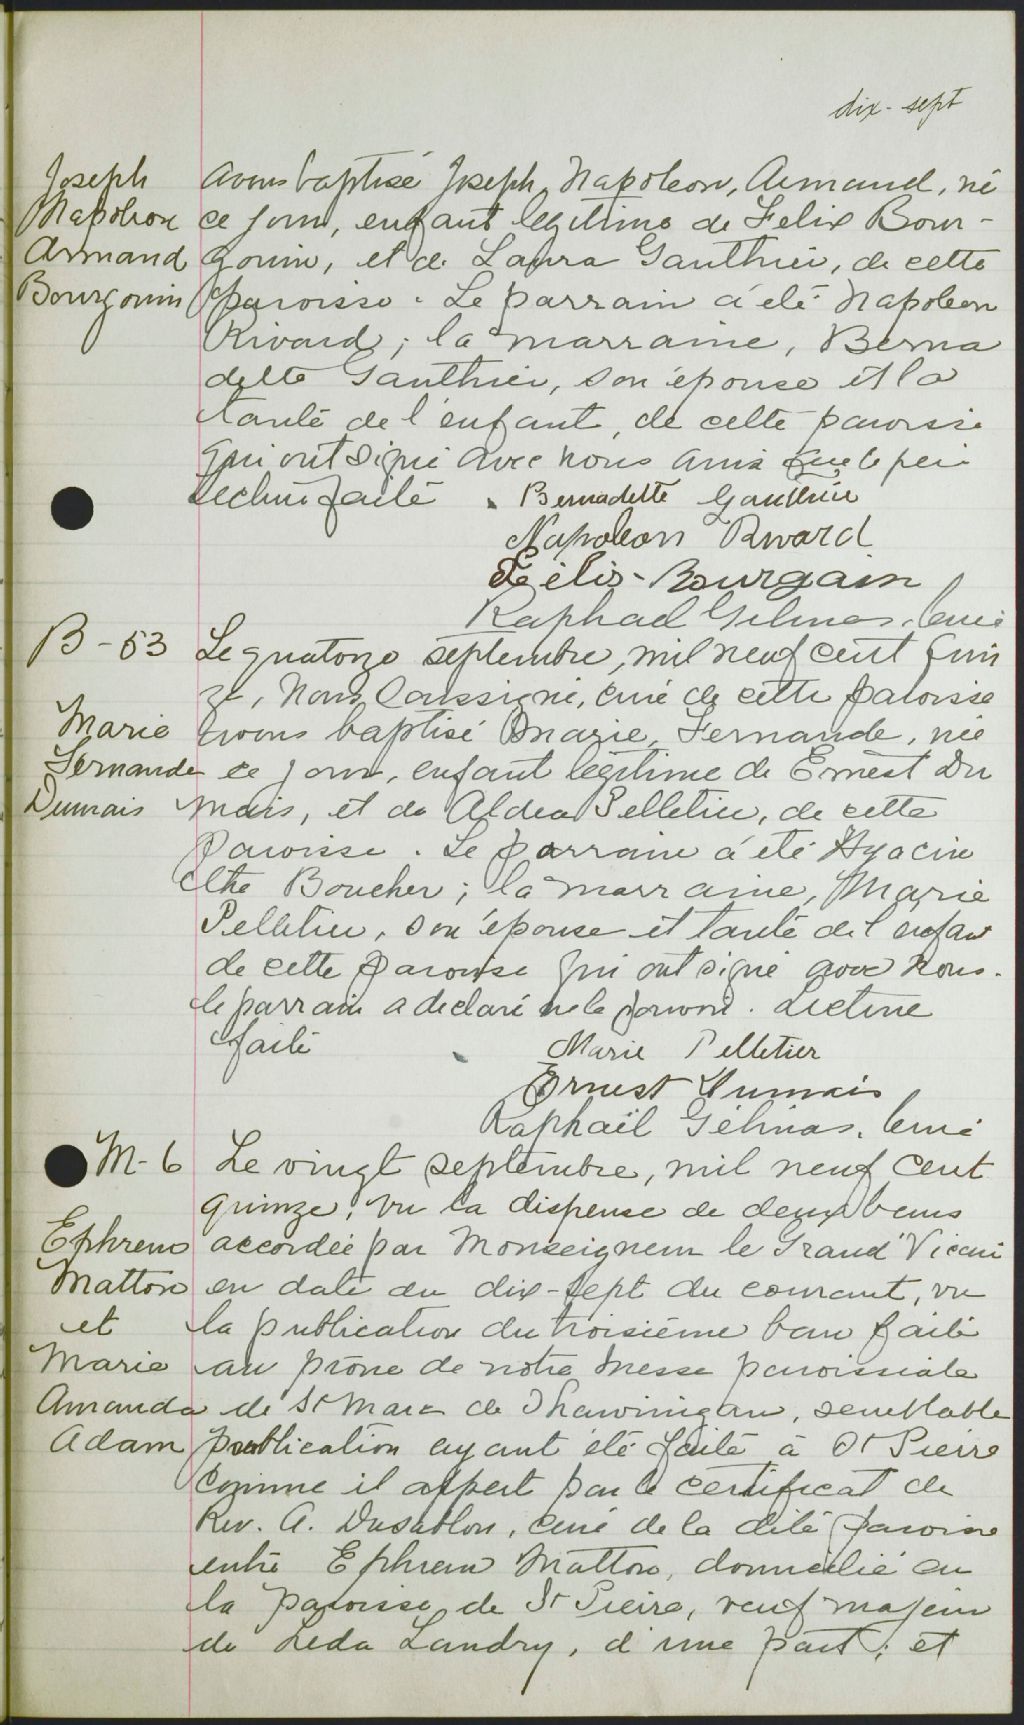 dix-sept
Joseph
Napoleon
Armand
Bourgouin
avons baptisé Joseph, Napoleon, Armand, né
ce jour, enfant legitime de Felix Bour-
gouin, et de Laura Gauthier, de cette
paroisse. Le parrain a été Napoleon
Rivard; la marraine, Berna
dette Gauthier, son épouse et la
tante de l'enfant, de cette paroisse
qui ont signé avec nous ainsi que le père
lecture faite.
Bernadette Gauthier
Napoleon Rivard
Félix Bourgain
Raphael Gelinas, curé
B-53
Marie
Fernande
Dumais
Le quatorze septembre, mil neuf cent quin
ze, Nous soussigné, curé de cette paroisse
avons baptisé Marie, Fernande, née
ce jour, enfant legitime de Ernest Du
mais, et de Aldea Pelletier, de cette
paroisse. Le parrain a été Hyacin
the Boucher; la marraine, Marie
Pelletier, son épouse et tante de l'enfant
de cette paroisse qui ont signé avec nous.
le parrain a declaré ne le pouvoir. Lecture
faite
Marie Pelletier
Ernest Dumais
Raphaël Gélinas, curé
M-6
Ephrem
Matton
et
Marie
Amanda
Adam
Le vingt septembre, mil neuf cent
quinze, vu la dispense de deux bans
accordée par Monseigneur le Grand Vicaire
en date du dix-sept du courant, vu
la publication du troisième ban faite
au prône de notre messe paroissiale
de St Marc de Shawinigan, semblable
publication ayant été faite à St Pierre
comme il appert par le certificat de
Rev. A. Dusablon, curé de la dite paroisse
entre Ephrem Matton, domicilié en
la paroisse de St Pierre, veuf majeur
de Leda Landry, d'une part; et